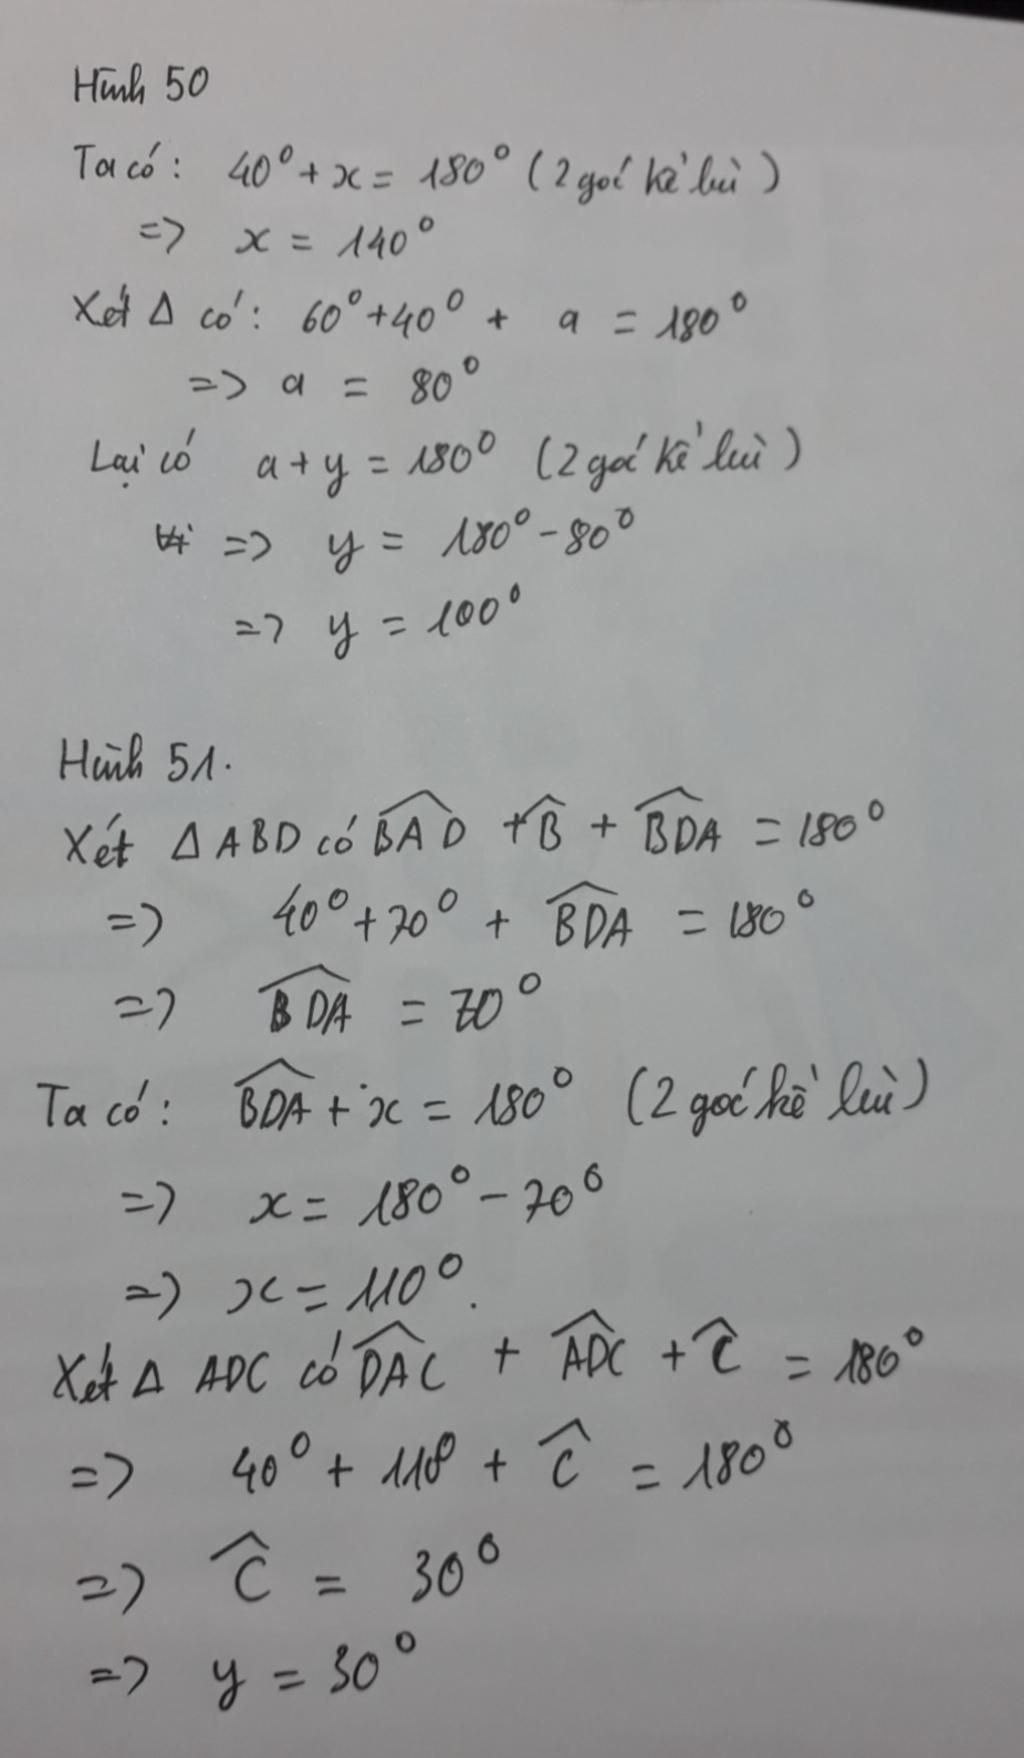 Hình 50
Ta có: 40° + x = 180° (2 góc kề bù)
=> x = 140°
Xét Δ có: 60° + 40° + a = 180°
=> a = 80°
Lại có a + y = 180° (2 góc kề bù)
=> y = 180° - 80°
=> y = 100°
Hình 51.
Xét Δ ABD có \widehat{BAD} + \widehat{B} + \widehat{BDA} = 180°
=> 40° + 70° + \widehat{BDA} = 180°
=> \widehat{BDA} = 70°
Ta có: \widehat{BDA} + x = 180° (2 góc kề bù)
=> x = 180° - 70°
=> x = 110°.
Xét Δ ADC có \widehat{DAC} + \widehat{ADC} + \widehat{C} = 180°
=> 40° + 110° + \widehat{C} = 180°
=> \widehat{C} = 30°
=> y = 30°